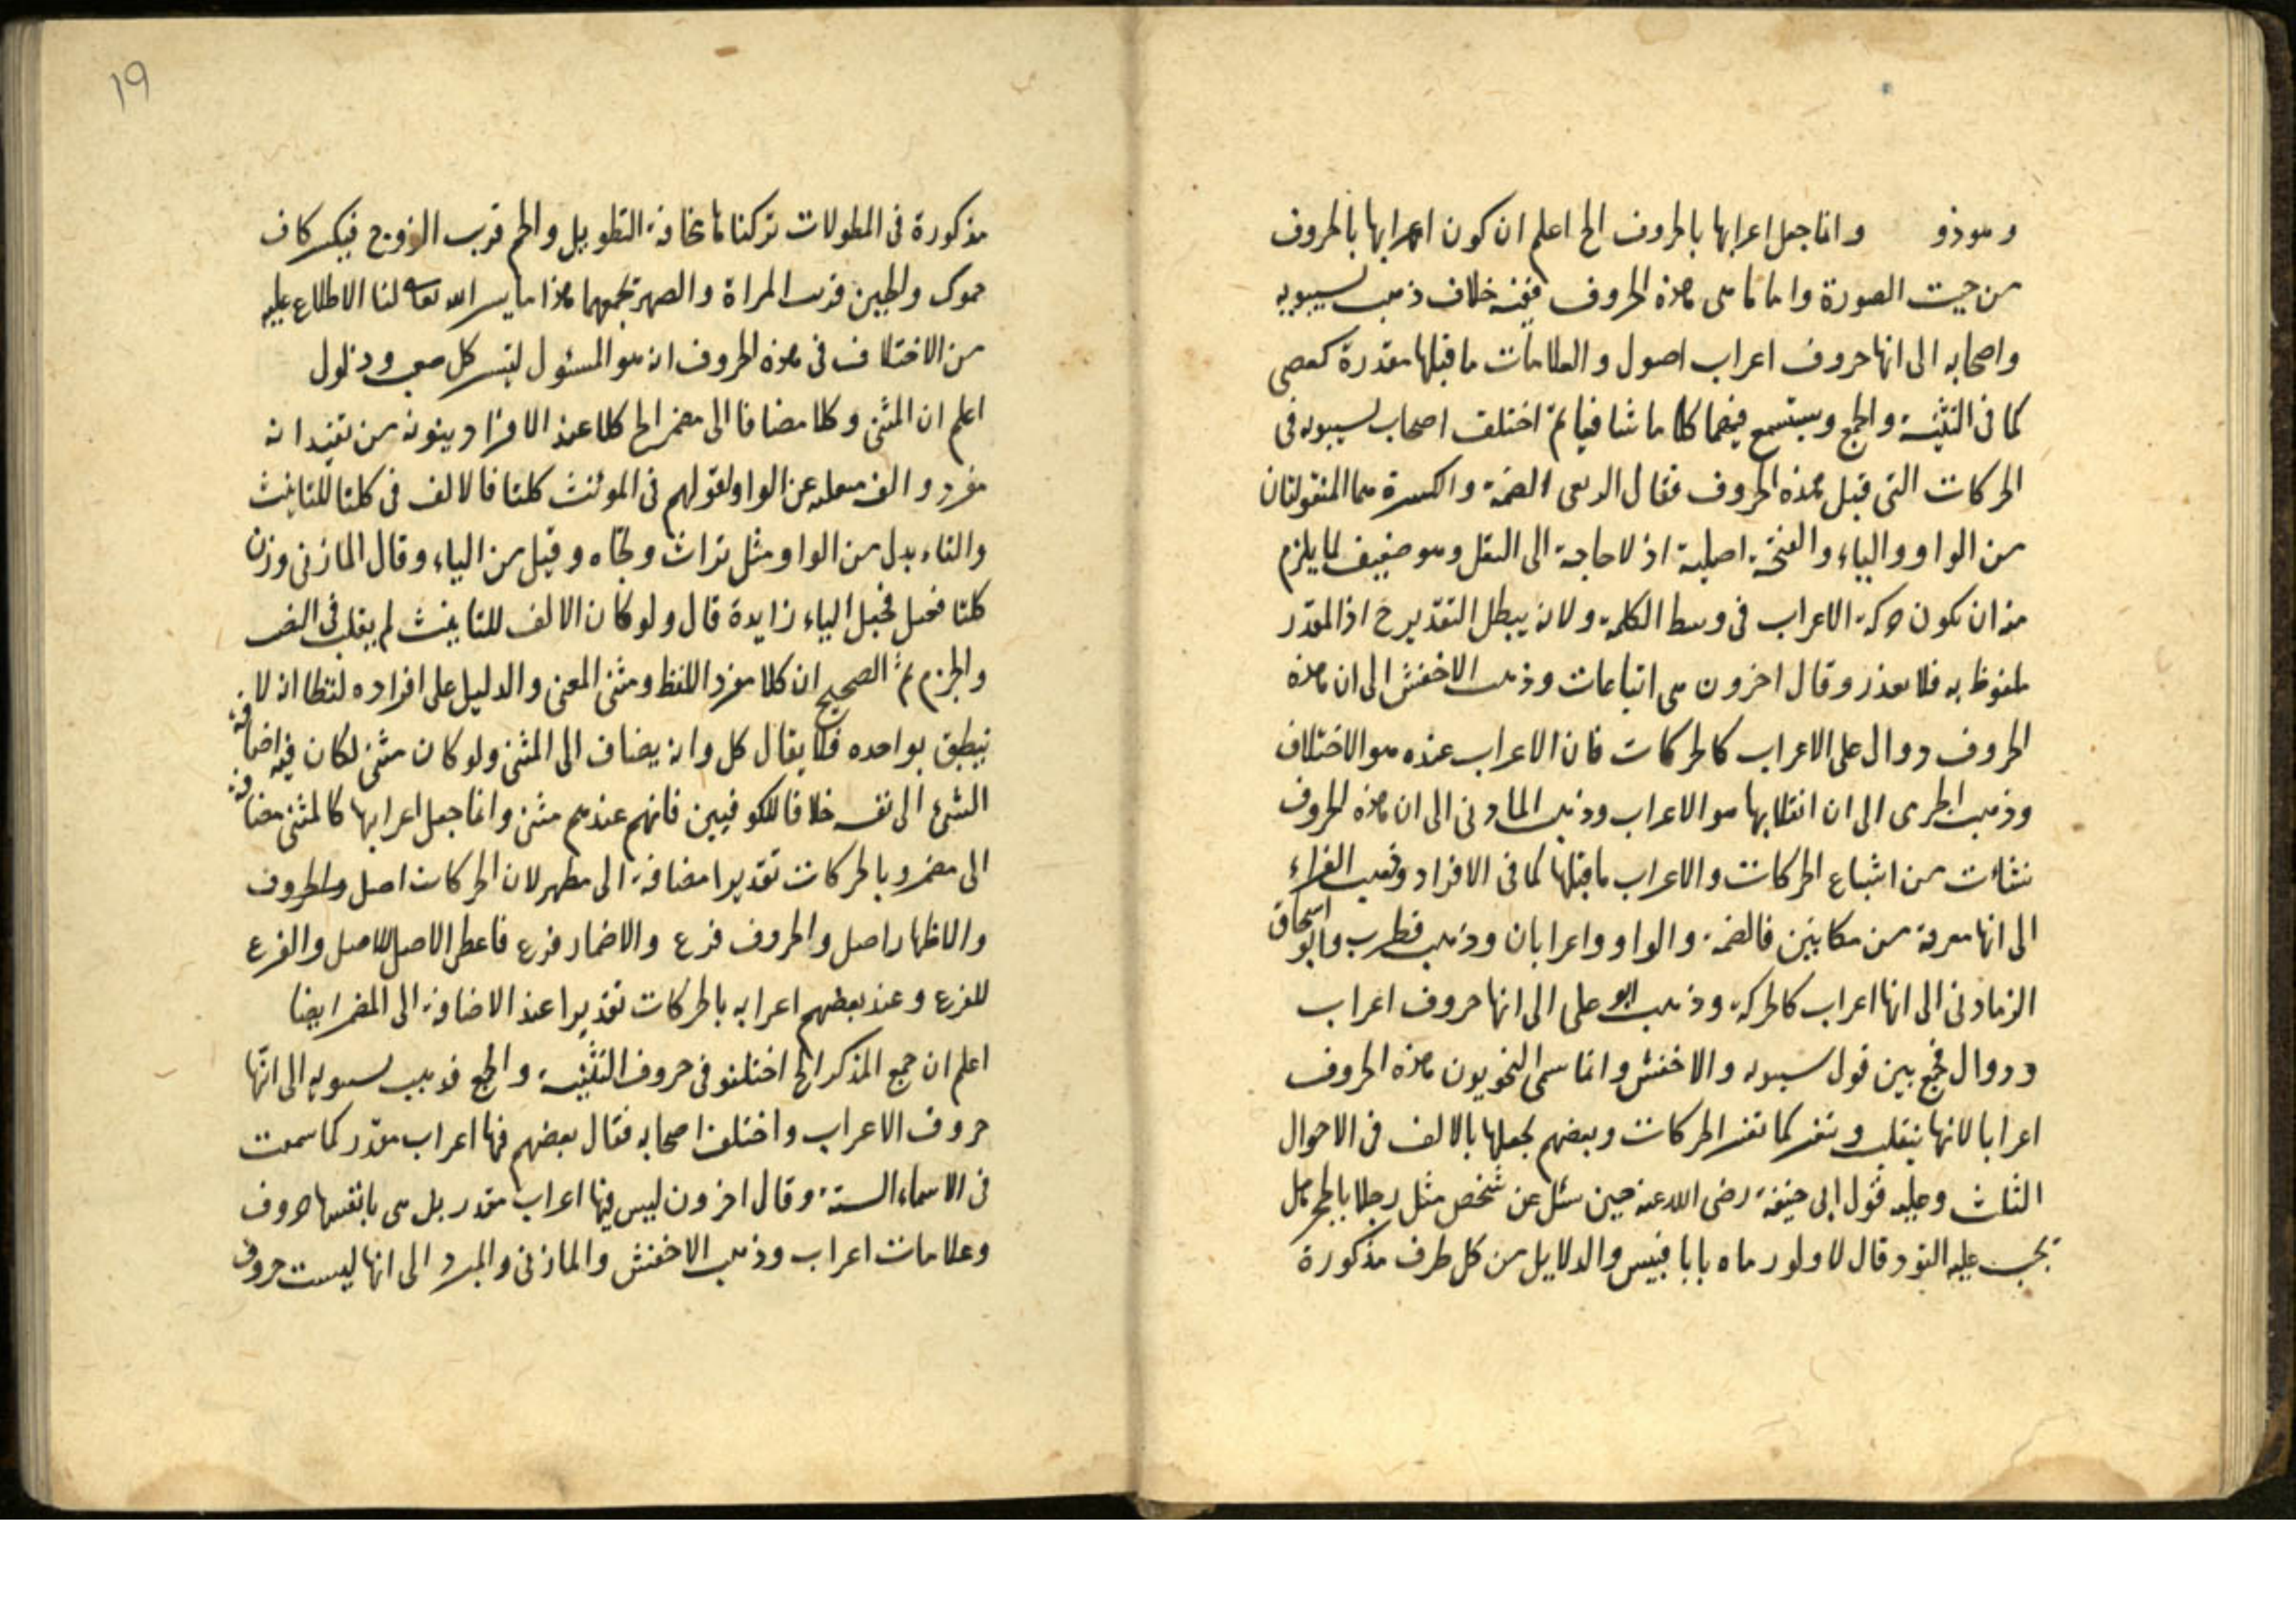 وهو ذو وانما جعل اعرابها بالحروف الخ اعلم ان كون اعرابها بالحروف
من حيث الصورة واما ماهى هذه الحروف ففيه خلاف ذهب سيبويه
واصحابه الى انها حروف اعراب اصول والعلامات ما قبلها مقدرة كعصى
كما فى التثنية والجمع وستسمع فيهما كلاما شافيا ثم اختلف اصحاب سيبويه فى
الحركات التى قبل هذه الحروف فقال الربعى الضمة والكسرة هما المنقولتان
من الواو والياء والفتحة اصلية اذ لا حاجة الى النقل وهو ضعيف لما يلزم
منه ان تكون حركة الاعراب فى وسط الكلمة ولانه يبطل التقدير ح اذ المقدر
ملفوظ به فلا تعذر وقال اخرون هى اتباعات وذهب الاخفش الى ان هذه
الحروف دوال على الاعراب كالحركات فان الاعراب عنده هو الاختلاف
وذهب الجرمى الى ان انقلابها هو الاعراب وذهب المازنى الى ان هذه الحروف
نشات من اشباع الحركات والاعراب ما قبلها كما فى الافراد وذهب الفراء
الى انها معربة من مكانين فالضمة والواو واعرابان وذهب قطرب وابو اسحاق
الزيادنى الى انها اعراب كالحركة وذهب ابو على الى انها حروف اعراب
ودوال فجمع بين قول سيبويه والاخفش وانما سمى النحويون هذه الحروف
اعرابا لانها تنقلب وتتغير كما تتغير الحركات وبعضهم يجعلها بالالف فى الاحوال
الثلث وعليه قول ابى حنيفة رضى الله عنه حين سئل عن شخص مثل رجلا بالحجر هل
يجب عليه القود قال لا ولو رماه بابا قبيس والدلايل من كل طرف مذكورة
19
مذكورة فى المطولات تركناها مخافة التطويل والحم قريب الزوج فيكسر كاف
حموك والحيين قريب المراة والصهر يجمعهما هذا ما يسر الله تعالى لنا الاطلاع عليه
من الاختلاف فى هذه الحروف انه هو المسئول لتيسير كل صعب وذلول
اعلم ان المثنى وكلا مضافا الى مضمر الخ كلا عند الافراد ينونه من تقيد انه
مفرد والفه عن الواو لقولهم فى المونث كلتا فالالف فى كلتا للتانيث
والتاء بدل من الواو مثل تراث وتجاه وقيل من الياء وقال المازنى وزن
كلتا فعيل فجعل الياء زايدة قال ولو كان الالف للتانيث لم يقلب فى النصب
والجزم ثم الصحيح ان كلا مفرد اللفظ ومثنى المعنى والدليل على افراده لفظا انه لا
ينطبق بواحده فلا يقال كل وانه يضاف الى المثنى ولو كان مثنى لكان فيه اضافة
الشئ الى نفسه خلافا للكوفيين فانهم عندهم مثنى وانما جعل اعرابها كالمثنى مضافة
الى مضمر وبالحركات تقديرا مضافة الى مظهر لان الحركات اصل والحروف
والاظهار اصل والحروف فرع والاضمار فرع فاعطى الاصل للاصل والفرع
للفرع وعند بعضهم اعرابه بالحركات تقديرا عند الاضافة الى المضمر ايضا
اعلم ان جمع المذكر الخ اختلفو فى حروف التثنية والجمع فذهب سيبويه الى انها
حروف الاعراب واختلف اصحابه فقال بعضهم فيها اعراب مقدر كما سمعت
فى الاسماء الستة وقال اخرون ليس فيها اعراب مقدر بل هى بانفسها حروف
وعلامات اعراب وذهب الاخفش والمازنى والمبرد الى انها ليست حروف